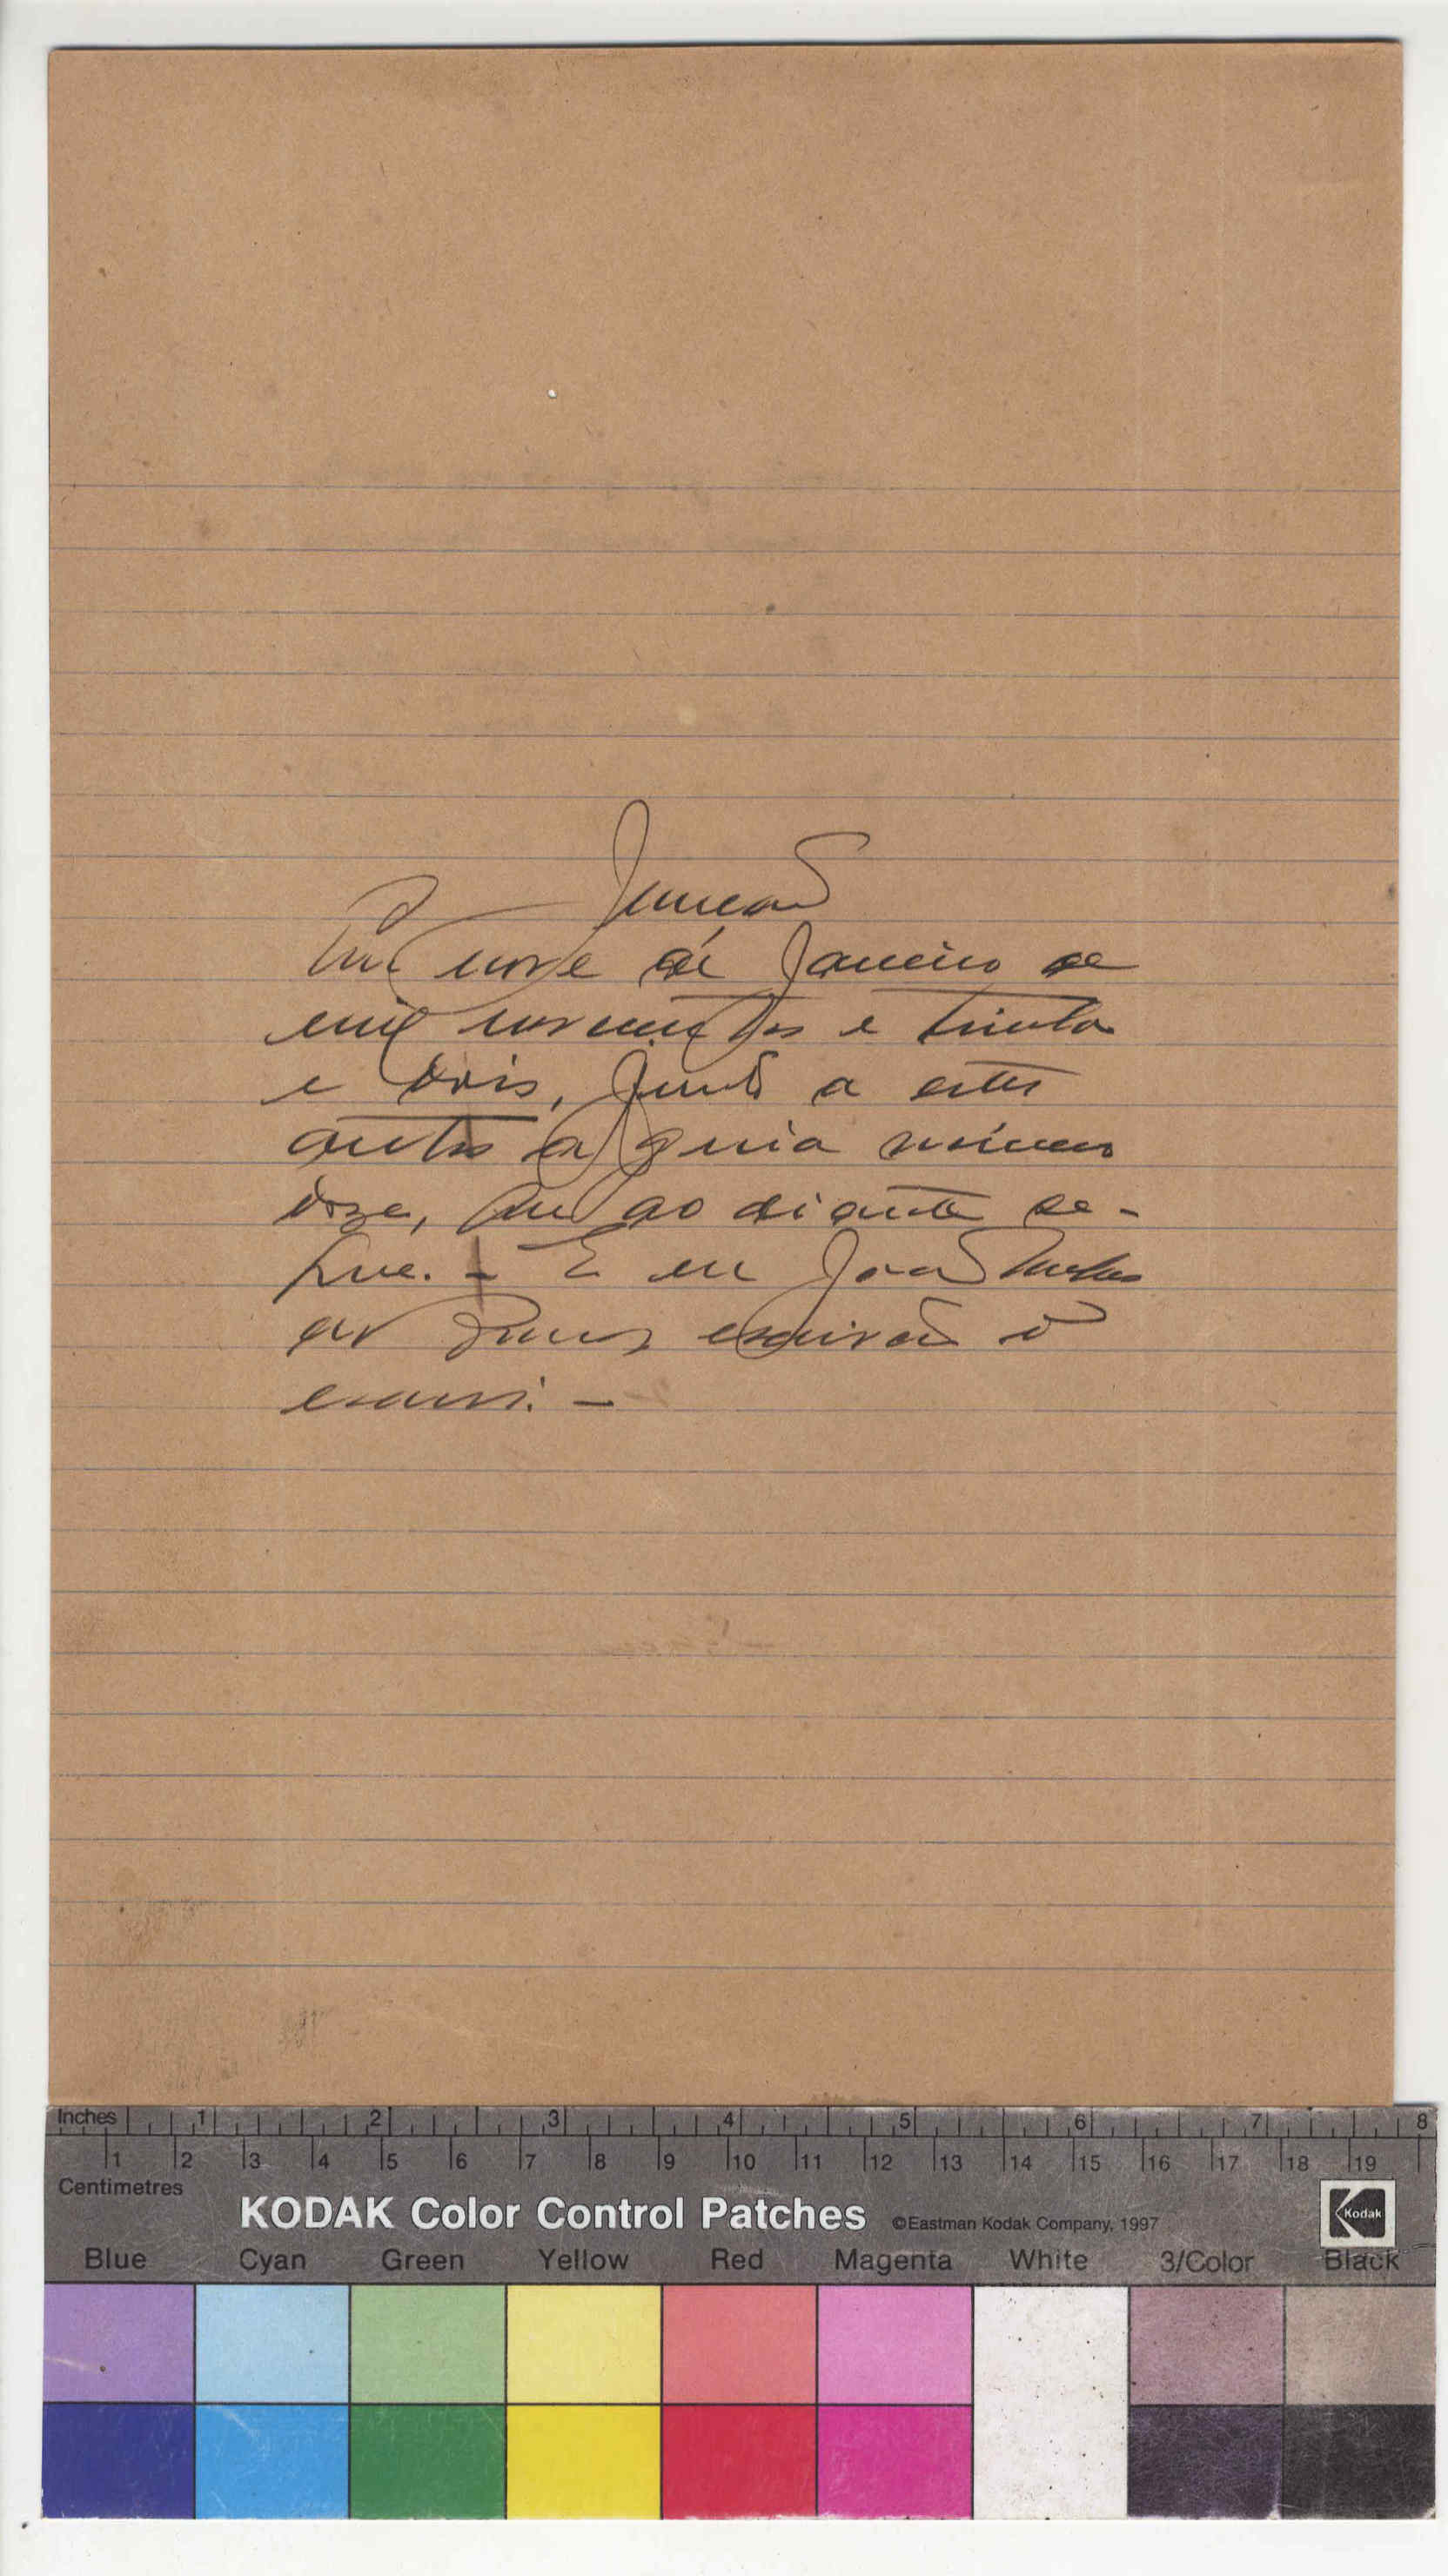 Juncção
Em nove de Janeiro de
mil novecentos e trinta
e dois, junto a estes
autos a guia número
doze, que ao diante se-
gue. - E eu João
escrivão o
escrevi. -
Inches 1 2 3 4 5 6 7 8
1 2 3 4 5 6 7 8 9 10 11 12 13 14 15 16 17 18 19
Centimetres
KODAK Color Control Patches ©Eastman Kodak Company, 1997 Kodak
Blue Cyan Green Yellow Red Magenta White 3/Color Black